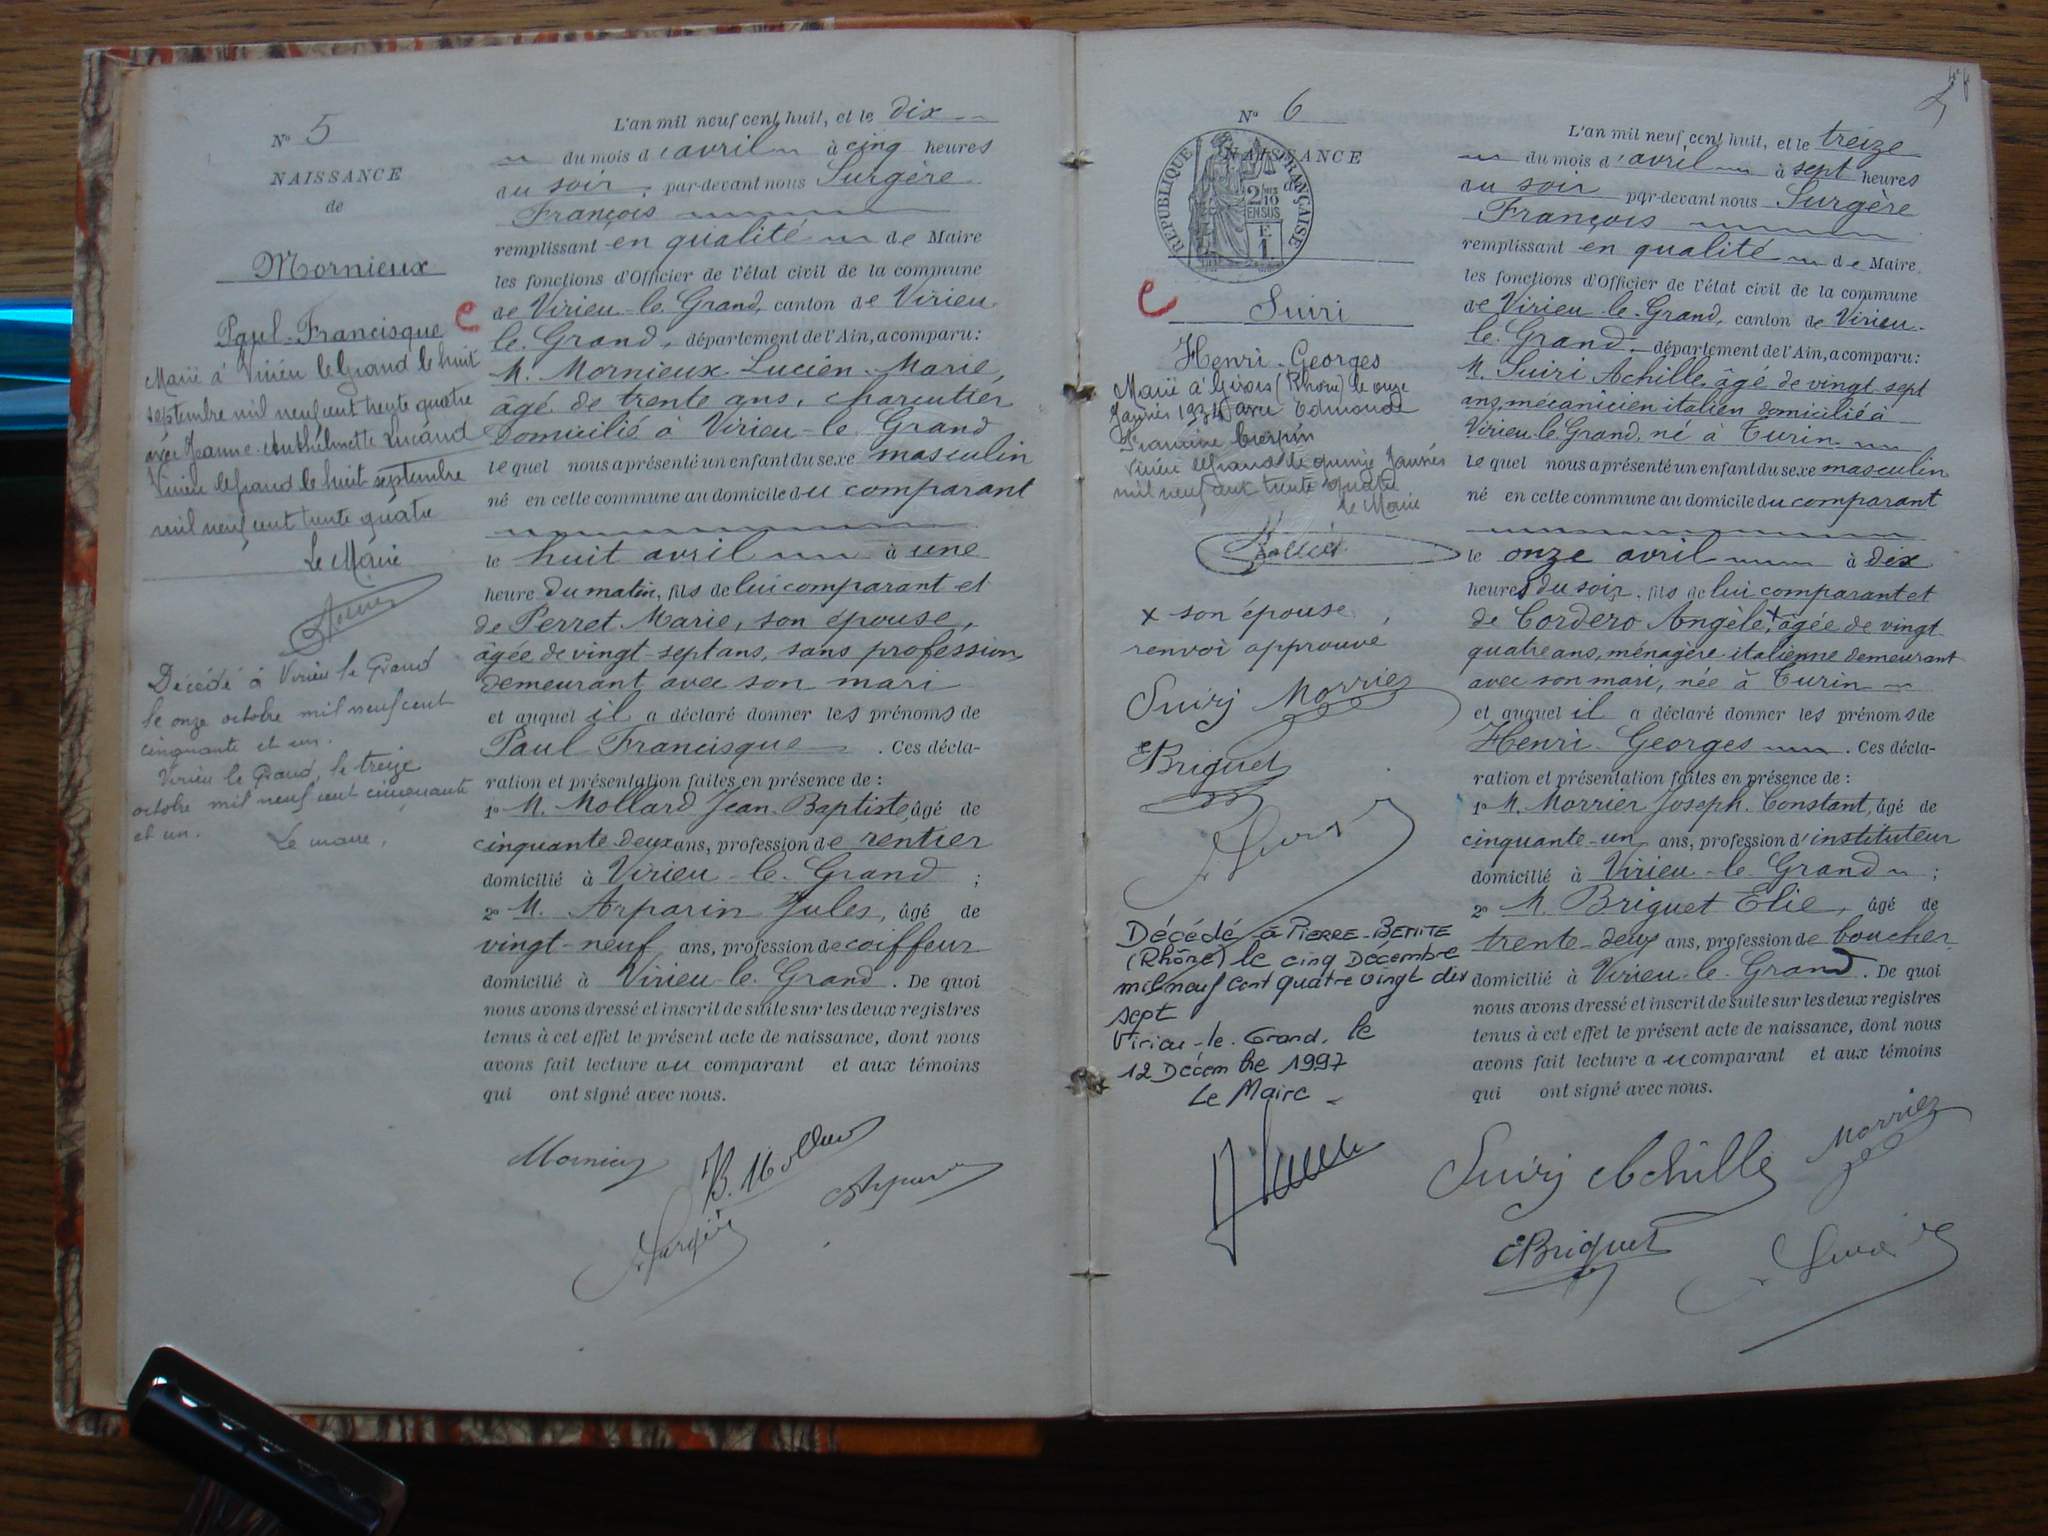 N° 5
NAISSANCE
de
Mornieux
Paul-Francisque
Marié à Virieu le Grand le huit
septembre mil neuf cent trente quatre
avec Jeanne Anthelmette Lucand
Virieu le Grand le huit septembre
mil neuf cent trente quatre
Le Maire
Décédé à Virieu le Grand
le onze octobre mil neuf cent
cinquante et un.
Virieu le Grand, le treize
octobre mil neuf cent cinquante
et un.
Le maire,
L'an mil neuf cent huit, et le dix
du mois d'avril à cinq heures
du soir, par-devant nous Surgère
François
remplissant en qualité de Maire
les fonctions d'Officier de l'état civil de la commune
de Virieu-le-Grand, canton de Virieu-
le-Grand, département de l'Ain, a comparu:
M. Mornieux Lucien-Marie,
âgé de trente ans, charcutier
domicilié à Virieu-le-Grand
lequel nous a présenté un enfant du sexe masculin
né en cette commune au domicile du comparant
le huit avril à une
heure du matin, fils de lui comparant et
de Perret Marie, son épouse,
âgée de vingt-sept ans, sans profession,
demeurant avec son mari
et auquel il a déclaré donner les prénoms de
Paul Francisque. Ces décla-
ration et présentation faites en présence de :
1° M. Mollard Jean-Baptiste, âgé de
cinquante deux ans, profession de rentier
domicilié à Virieu-le-Grand ;
2° M. Arparin Jules, âgé de
vingt-neuf ans, profession de coiffeur
domicilié à Virieu-le-Grand. De quoi
nous avons dressé et inscrit de suite sur les deux registres
tenus à cet effet le présent acte de naissance, dont nous
avons fait lecture au comparant et aux témoins
qui ont signé avec nous.
B. Mollard
N° 6
NAISSANCE
de
RÉPUBLIQUE FRANÇAISE
2/10
EN SUS
E
1
Suiri
Henri-Georges
Marié à Givors (Rhône) le onze
Janvier 1934 avec Edmonde
Francine Crespin
Virieu le Grand le quinze Janvier
mil neuf cent trente quatre
Le Maire
x son épouse
renvoi approuvé
Suirj Morrier
EBriquet
Décédé à PIERRE-BENITE
(Rhône) le cinq Décembre
mil neuf cent quatre vingt dix
sept
Virieu-le-Grand, le
12 Décembre 1997
Le Maire
L'an mil neuf cent huit, et le treize
du mois d'avril à sept heures
du soir par-devant nous Surgère
François
remplissant en qualité de Maire
les fonctions d'Officier de l'état civil de la commune
de Virieu-le-Grand, canton de Virieu-
le-Grand, département de l'Ain, a comparu:
M. Suiri Achille, âgé de vingt-sept
ans, mécanicien italien domicilié à
Virieu-le-Grand, né à Turin
lequel nous a présenté un enfant du sexe masculin
né en cette commune au domicile du comparant
le onze avril à dix
heures du soir, fils de lui comparant et
de Cordero Angèle, x âgée de vingt
quatre ans, ménagère italienne demeurant
avec son mari, née à Turin
et auquel il a déclaré donner les prénoms de
Henri-Georges. Ces décla-
ration et présentation faites en présence de :
1° M. Morrier Joseph-Constant, âgé de
cinquante-un ans, profession d'instituteur
domicilié à Virieu-le-Grand ;
2° M. Briquet Elie, âgé de
trente-deux ans, profession de boucher
domicilié à Virieu-le-Grand. De quoi
nous avons dressé et inscrit de suite sur les deux registres
tenus à cet effet le présent acte de naissance, dont nous
avons fait lecture au comparant et aux témoins
qui ont signé avec nous.
Suirj Achille Morrier
EBriquet